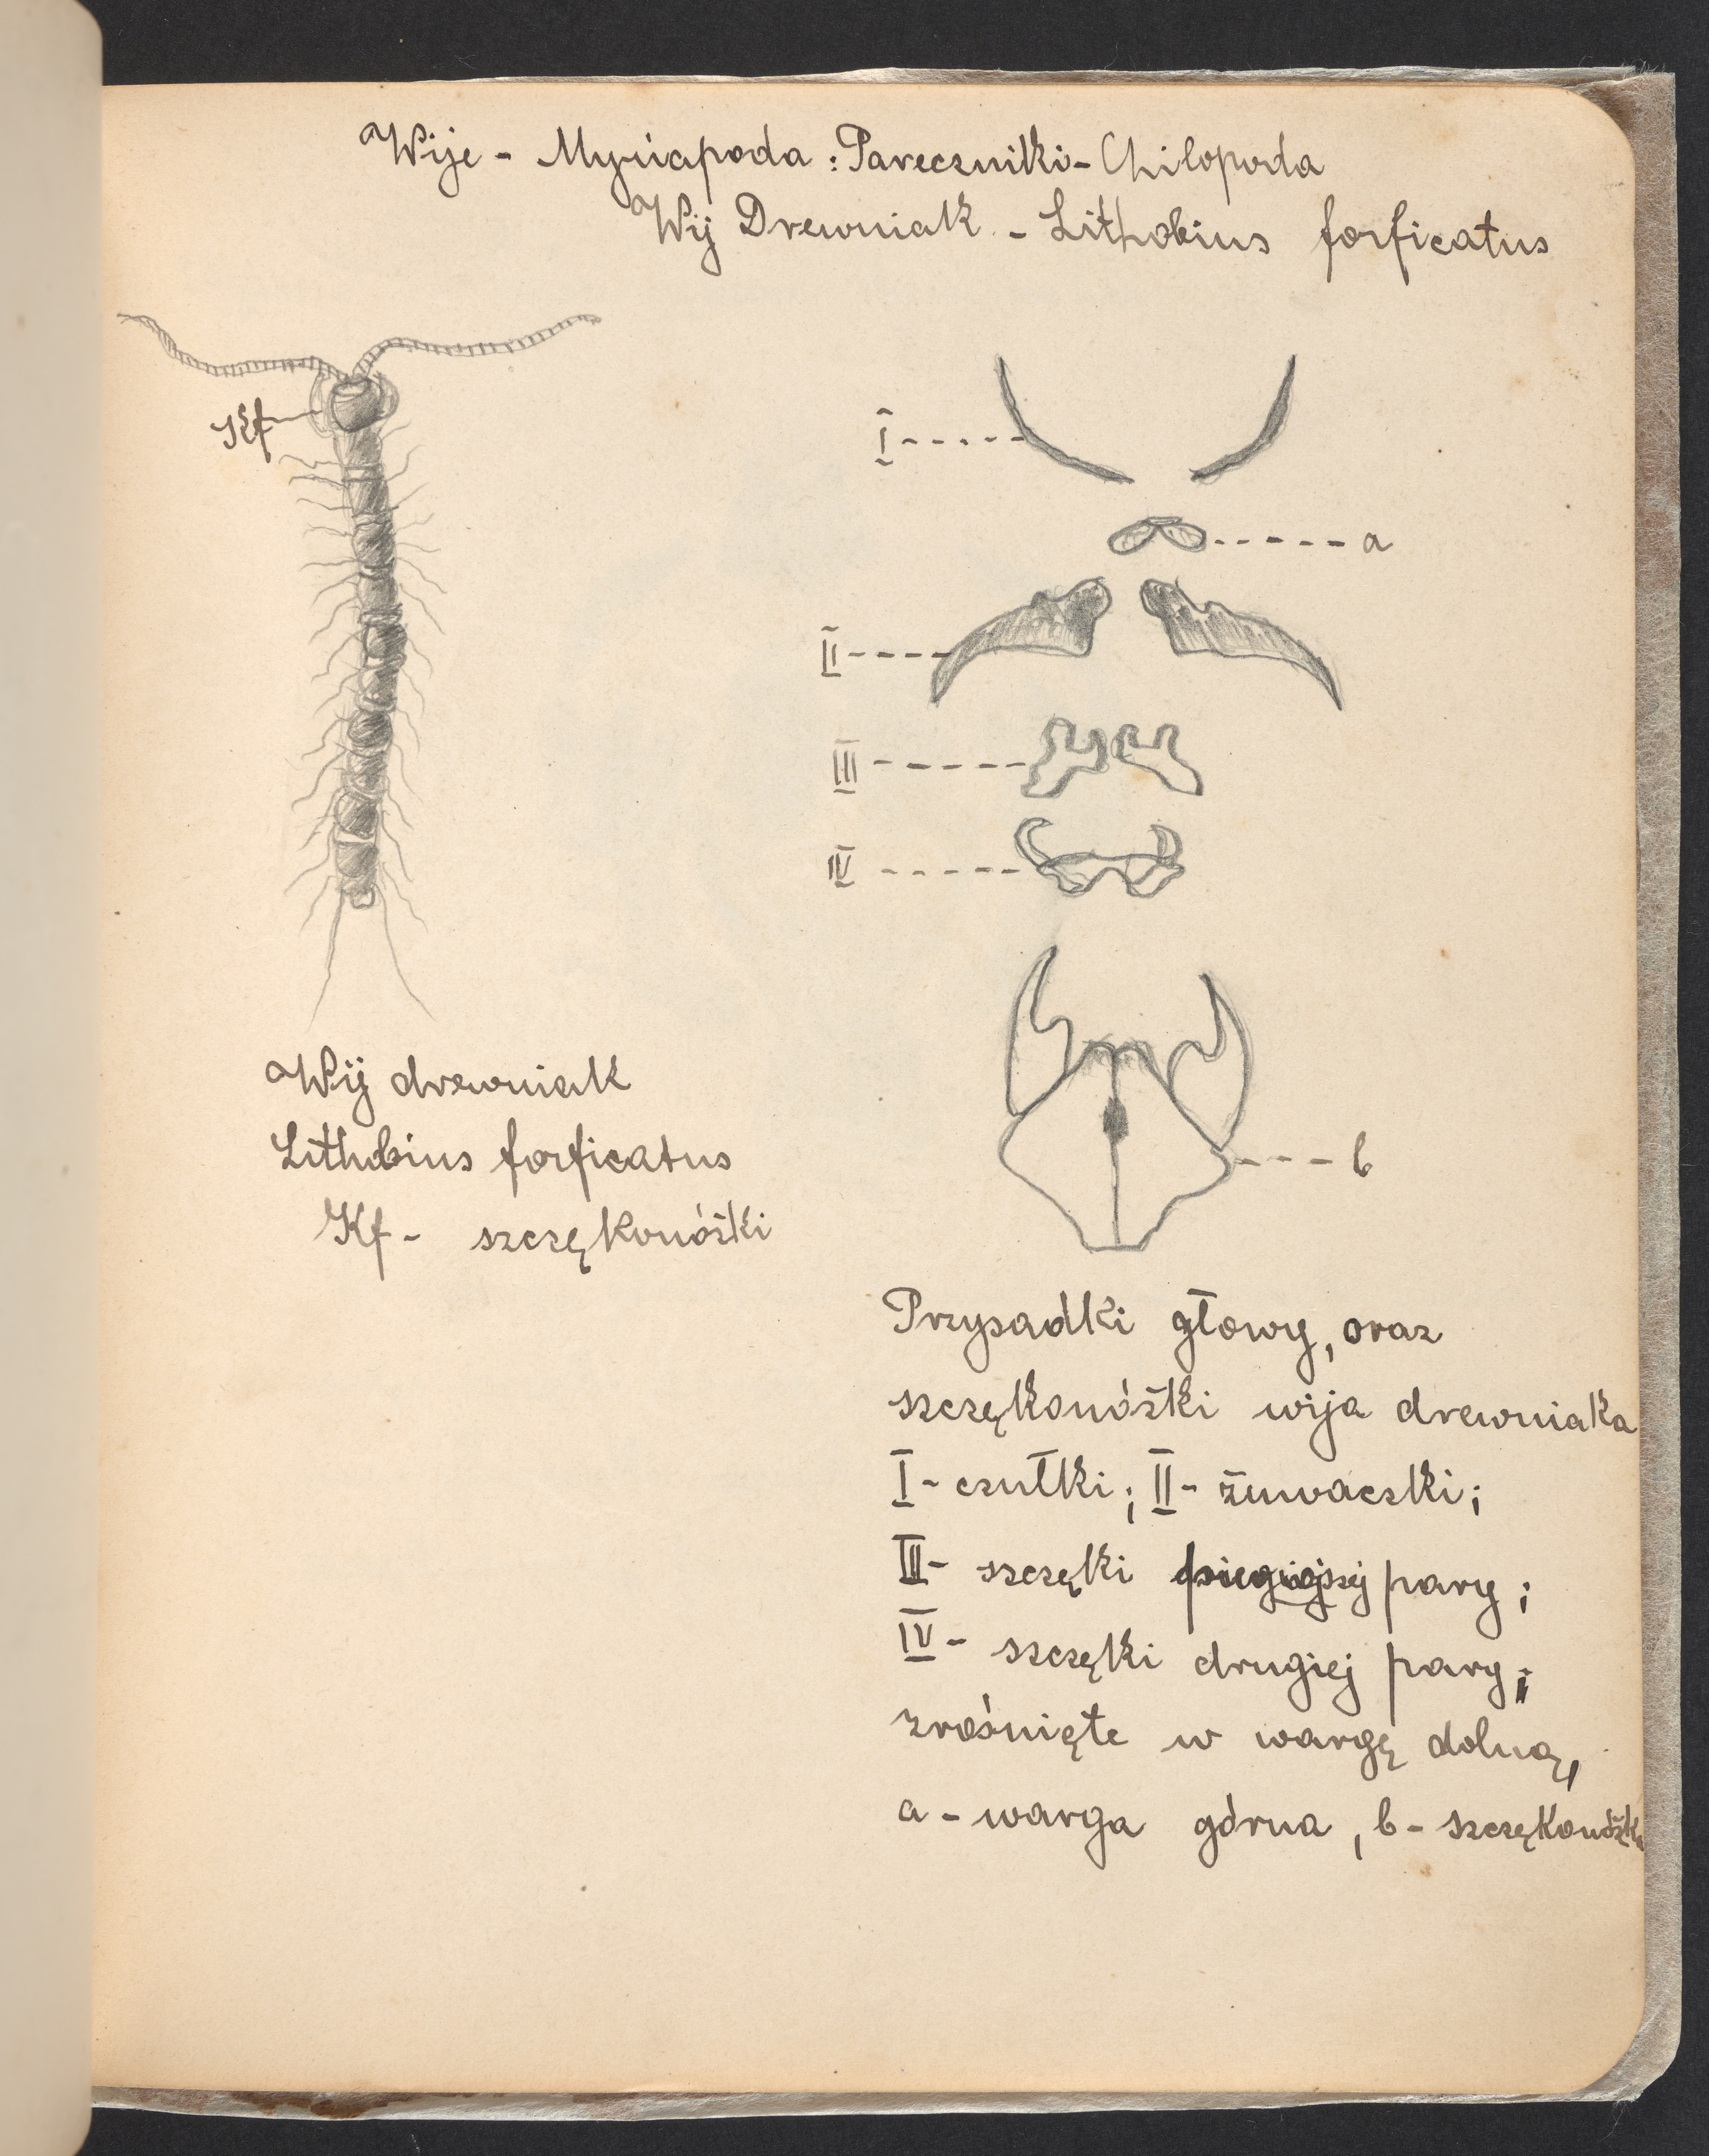 Wije - Myriapoda : Pareczniki - Chilopoda
Wij Drewniak - Lithobius forficatus
Kf
I
a
II
III
IV
b
Wij drewniak
Lithobius forficatus
Kf - szczękonóżki
Przysadki głowy, oraz
szczękonóżki wija drewniaka
I - czułki; II - żuwaczki;
III - szczęki pary;
IV - szczęki drugiej pary;
zrośnięte w wargę dolną,
a - warga górna, b - szczękonóżki